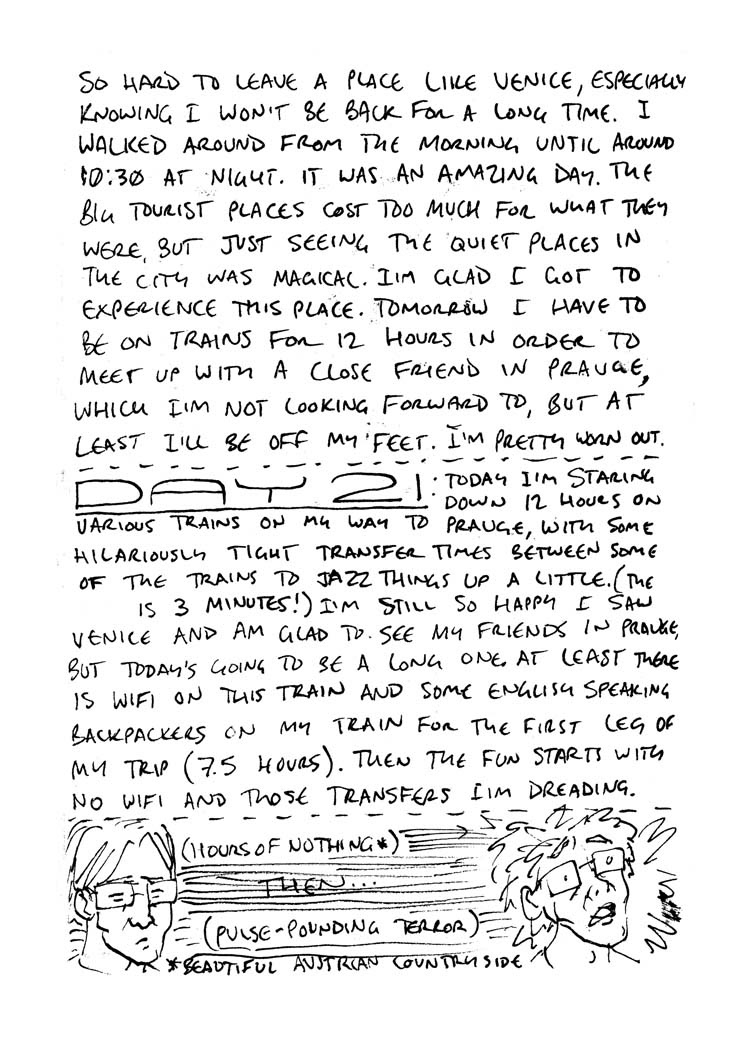 SO HARD TO LEAVE A PLACE LIKE VENICE, ESPECIALLY
KNOWING I WON'T BE BACK FOR A LONG TIME. I
WALKED AROUND FROM THE MORNING UNTIL AROUND
10:30 AT NIGHT. IT WAS AN AMAZING DAY. THE
BIG TOURIST PLACES COST TOO MUCH FOR WHAT THEY
WERE, BUT JUST SEEING THE QUIET PLACES IN
THE CITY WAS MAGICAL. I'M GLAD I GOT TO
EXPERIENCE THIS PLACE. TOMORROW I HAVE TO
BE ON TRAINS FOR 12 HOURS IN ORDER TO
MEET UP WITH A CLOSE FRIEND IN PRAUGE,
WHICH I'M NOT LOOKING FORWARD TO, BUT AT
LEAST I'LL BE OFF MY FEET. I'M PRETTY WORN OUT.
DAY 21: TODAY I'M STARING
DOWN 12 HOURS ON
VARIOUS TRAINS ON MY WAY TO PRAUGE, WITH SOME
HILARIOUSLY TIGHT TRANSFER TIMES BETWEEN SOME
OF THE TRAINS TO JAZZ THINGS UP A LITTLE. (THE
IS 3 MINUTES!) I'M STILL SO HAPPY I SAW
VENICE AND AM GLAD TO SEE MY FRIENDS IN PRAUGE,
BUT TODAY'S GOING TO BE A LONG ONE. AT LEAST THERE
IS WIFI ON THIS TRAIN AND SOME ENGLISH SPEAKING
BACKPACKERS ON MY TRAIN FOR THE FIRST LEG OF
MY TRIP (7.5 HOURS). THEN THE FUN STARTS WITH
NO WIFI AND THOSE TRANSFERS I'M DREADING.
(HOURS OF NOTHING*)
THEN...
(PULSE-POUNDING TERROR)
*BEAUTIFUL AUSTRIAN COUNTRYSIDE